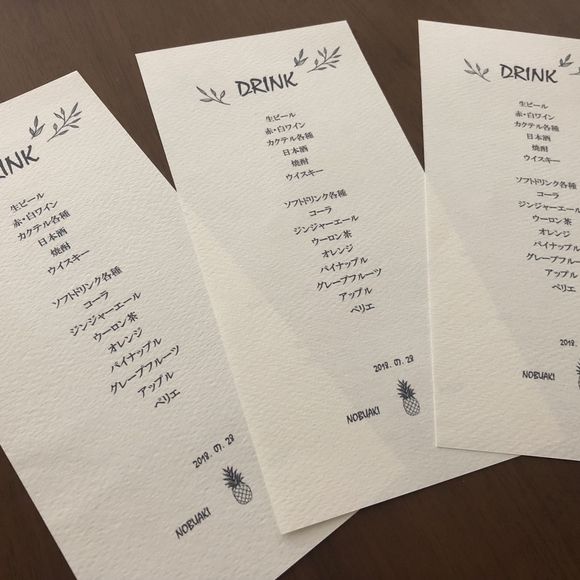 RINK
生ビール
赤・白ワイン
カクテル各種
日本酒
焼酎
ウイスキー
ソフトドリンク各種
コーラ
ジンジャーエール
ウーロン茶
オレンジ
パイナップル
グレープフルーツ
アップル
ペリエ
2018. 07. 28
NOBUAKI
DRINK
生ビール
赤・白ワイン
カクテル各種
日本酒
焼酎
ウイスキー
ソフトドリンク各種
コーラ
ジンジャーエール
ウーロン茶
オレンジ
パイナップル
グレープフルーツ
アップル
ペリエ
2018. 07. 28
NOBUAKI
DRINK
生ビール
赤・白ワイン
カクテル各種
日本酒
焼酎
ウイスキー
ソフトドリンク各種
コーラ
ジンジャーエール
ウーロン茶
オレンジ
パイナップル
グレープフルーツ
アップル
ペリエ
2018
NOBUAKI